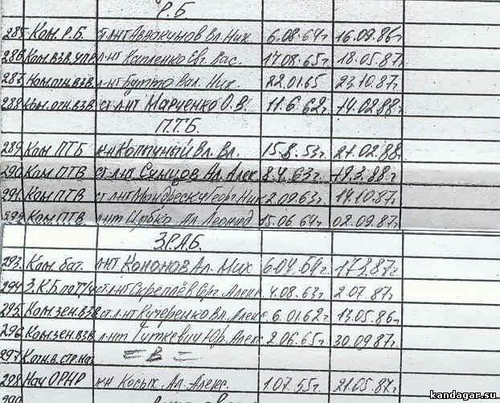 Р.Б
285 Ком. Р.Б. ст. л-нт Авваkumов Вл. Ник 6.08.64г 16.09.86г
286 Ком. взв. упр л-нт Капленко Евг. Вас. 17.08.65г 18.05.87г
287 Ком. огн. взв л-нт Бутто Вал. Ник. 22.01.65 23.10.87г
288 Ком. огн. взв ст. л-нт Мариенко О.В. 11.6.62г. 14.02.88г
П.Т.Б.
289 Ком ПТБ к-н Копычный Вл. Вл. 15.8.53г 21.02.88г
290 Ком ПТВ ст. л-нт Синцов Ал. Алек 8.4.63г. 19.3.88г
291 Ком ПТВ ст. л-нт Ник 2.09.63г. 14.10.87г
292 Ком ПТВ л-нт Цибко Ал. Леонид 15.06.64г 02.09.87г.
З.Р.А.Б.
293 Ком. бат. л-нт Кононов Ал. Мих 6.04.64г 1.7.3.87г.
294 З.К.Б. по ст. л-нт Алекс 4.08.63г 2.07.87г.
295 Ком. зен. взв ст. л-нт Кучеренко Вл. Алекс 6.01.62г 13.05.86г
296 Ком. зен. взв л-нт Гуткевич Юр. Алек 2.06.65г 30.09.87г.
297 Ком. в. = В =
298 Нач ОРНР к-н Косых Ал. Алекс. 1.07.55г 21.05.87г.
299
kandagar.su